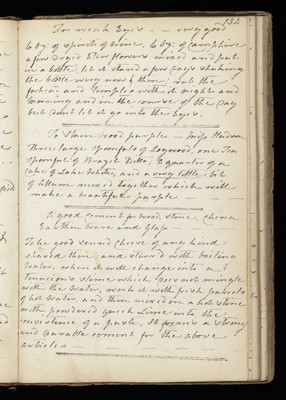 134
For weak Eyes - - very good
6 dr: of spirit of wine, 6 dr: of Camphire,
a few dried Elder flowers mixed and put
in a bottle, let it stand a few days shaking
the bottle every now & then: rub the
forhead and Temples with it night and
morning and in the course of the day
but dont let it go into the Eyes;
To Stain wood purple - Miss
Three large spoonfuls of Logwood, one Tea
spoonful of Brazil Ditto, a quarter of a
Cake of Lake White, and a very little bit
of Allum mixed together which will
make a beautiful purple -
A good cement for wood, stone, China
Earthen ware and Glass -
Take good sound cheese of one kind
shaved thin and stew'd with boiling
water, when it will change into a
tenacious slime which does not mingle
with the water, work it with fresh parcels
of hot water, and then mixed on a hot stone
with powdered quick Lime into the
consistence of a paste, It forms a strong
and durable cement for the above
articles -